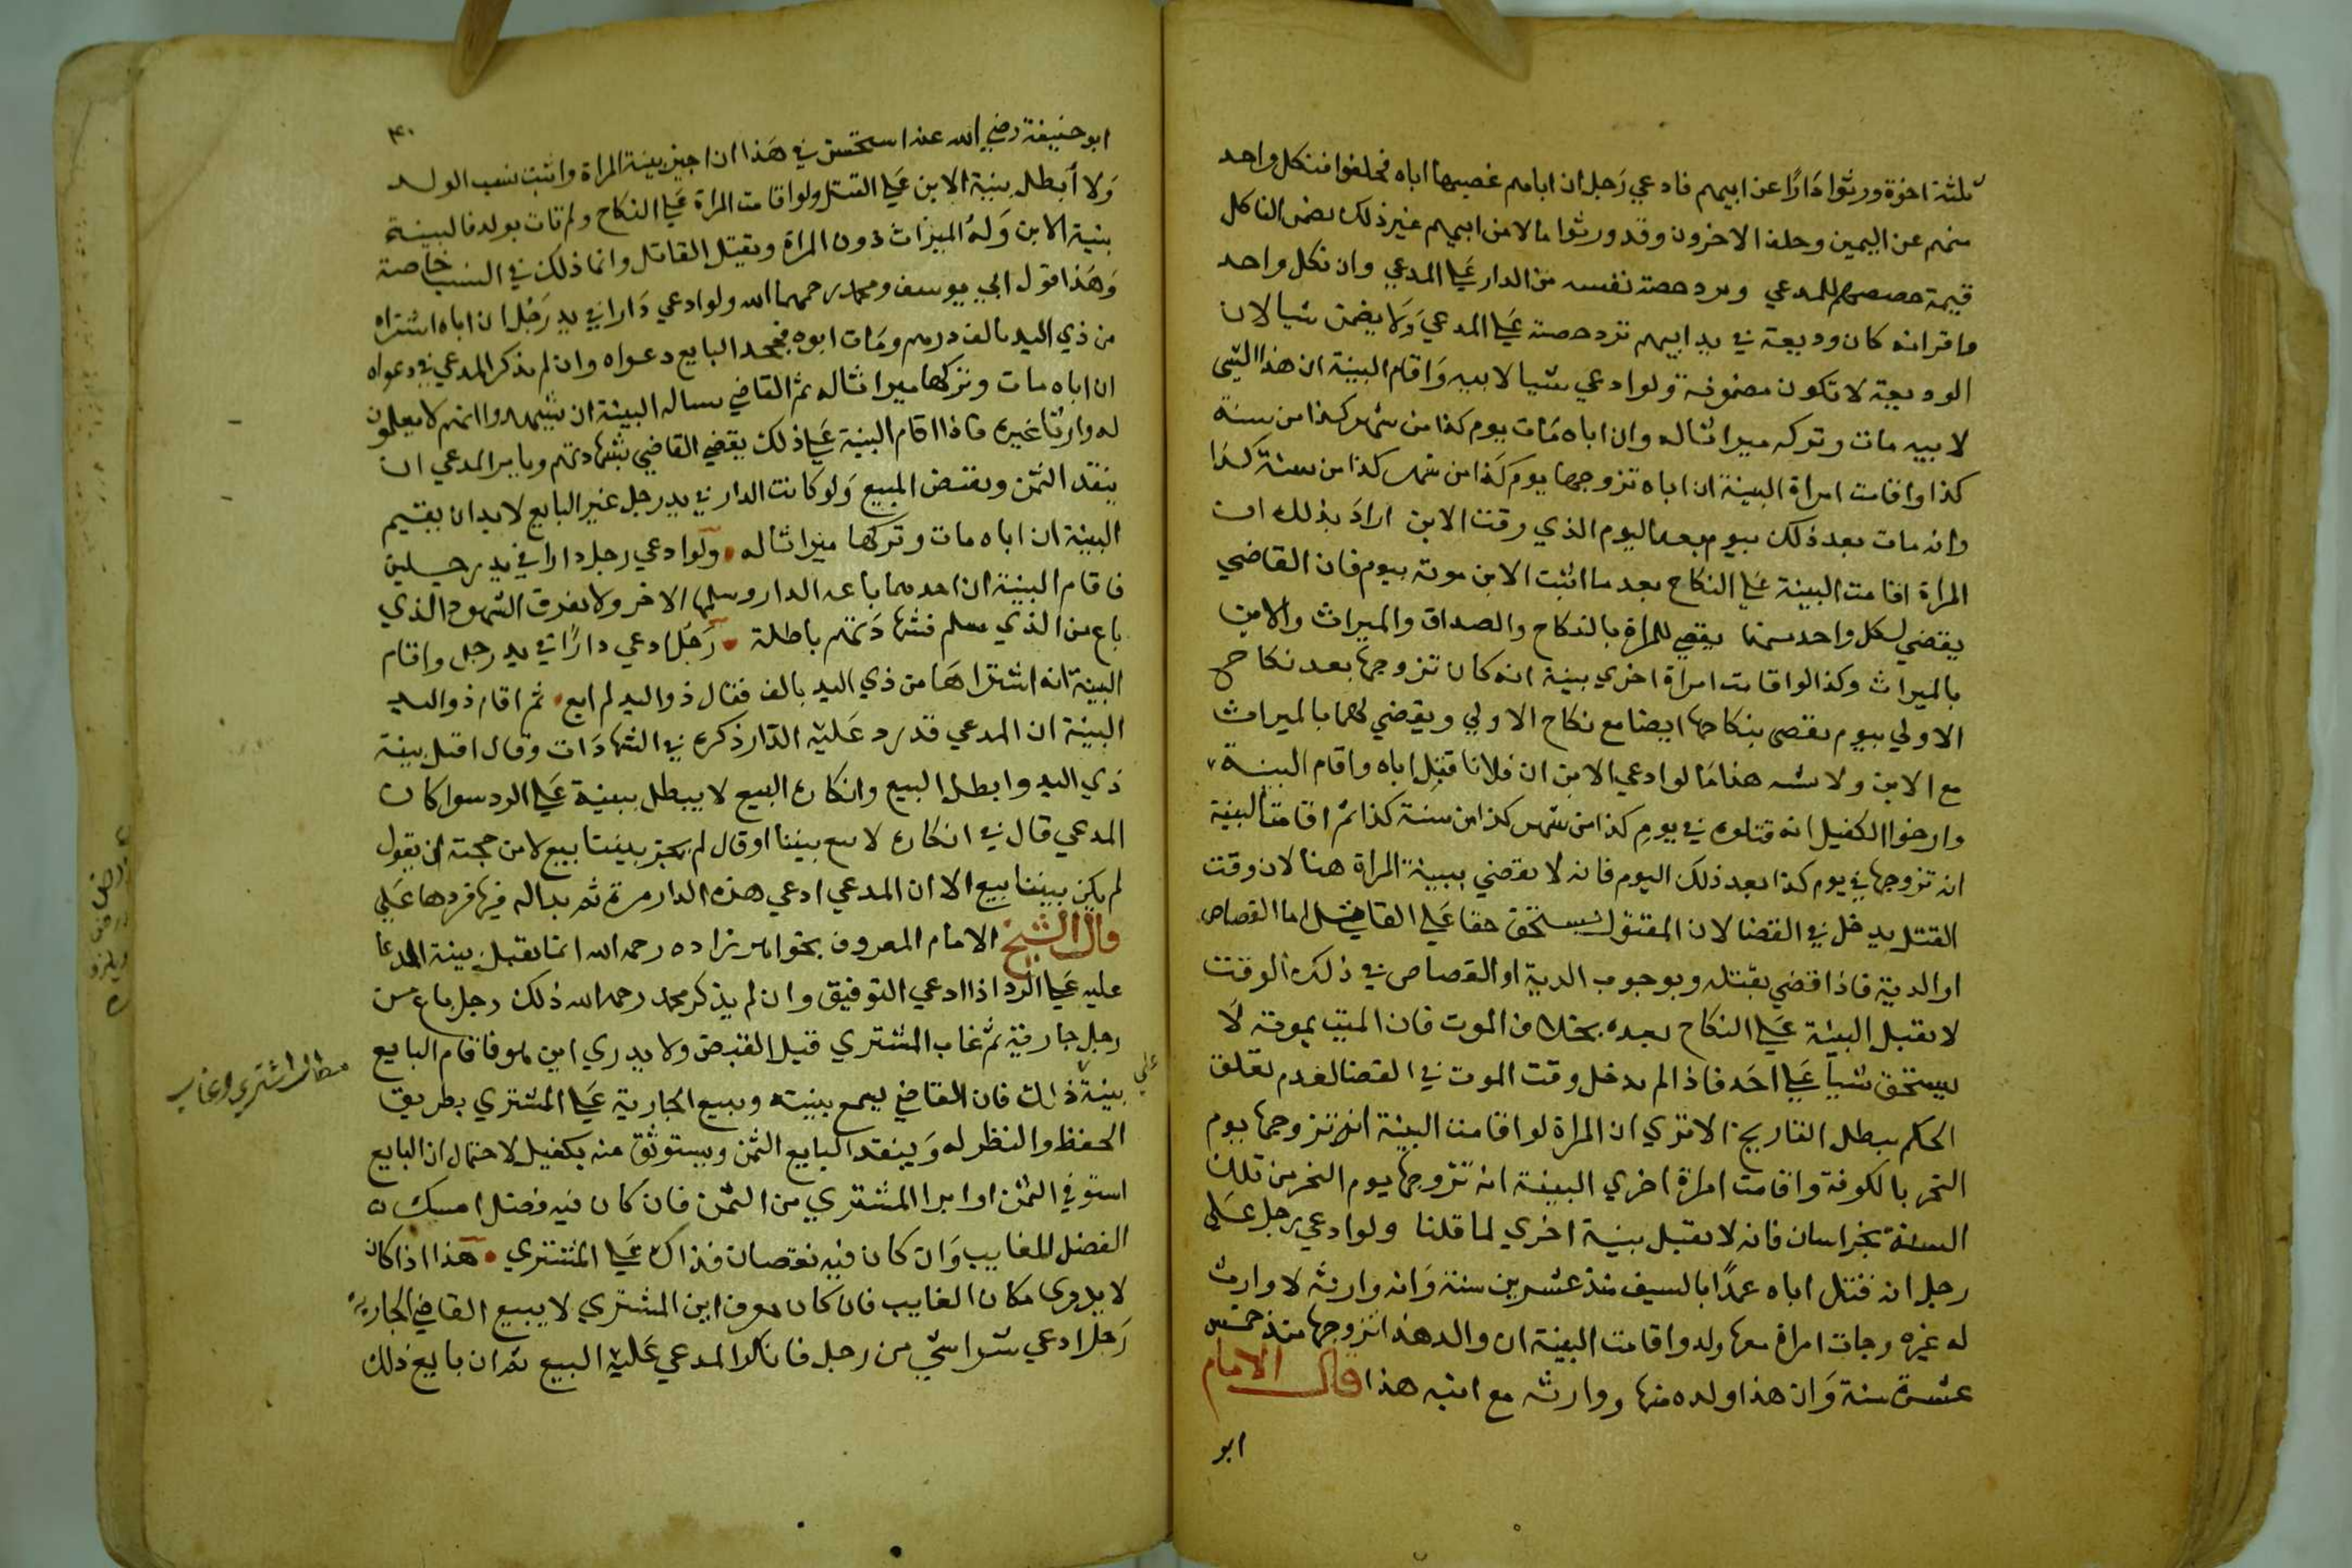 ثلثة اخوة ورثوا دَارًا عن ابيهم فادعي رَجل ان اباهم غصبها اباه فحلفوا فنكل واحد
منهم عن اليمين وحلف الاخرون وقد ورثوا مالا من ابيهم غير ذلك يضمن الناكل
قيمة حصصهم للمدعي ويرد حصة نفسه من الدار عَلي المدعي وان نكل واحد
واقر انه كان وديعة في يد ابيهم ترد حصته عَلي المدعي وَلا يضمن شيا لان
الوديعة لا تكون مضمونة ولو ادعي شيا لابيه وَاقام البينة ان هذا الشي
لابيه مات وتركه ميراثا له وان اباه مَات يوم كذا من شهر كذا من سنة
كذا واقامت امراة البينة ان اباه تزوجها يوم كَذا من شهر كذا من سنة كذا
وانه مات بعد ذلك بيوم بعد اليوم الذي وقت الابن ارادَ بذلك ان
المراة اقامت البينة عَلي النكاح بعد ما اثبت الابن موته بيوم فان القاضي
يقضي لكل واحد منهما يقضي للمراة بالنكاح والصداق والميراث والابن
بالميراث وكذا لو اقامت امراة اخري بينة انه كان تزوجها بعد نكاح
الاولي بيوم يقضي بنكاحها ايضا مع نكاح الاولي ويقضي لهما بالميراث
مع الابن ولا يشبه هذا مَا لو ادعي الابن ان فلانا قتل اباه واقام البينة
وارخوا القتل انه قتله في يومِ كذا من شهر كذا من سنة كذا ثم اقامت البينة
انه تزوجها في يوم كذا بعد ذلك اليوم فانه لا يقضي ببينة المراة هنا لان وقت
القتل يدخل في القضا لان المقتول يستحق حقا عَلي القاتل اما القصاص
او الدية فاذا قضي بقتله وبوجوب الدية او القصاص في ذلك الوقت
لا يقبل البينة عَلي النكاح بعده بخلاف الموت فان الميت بموته لَا
يستحق شيا عَلي احَد فاذا لم يدخل وقت الموت في القضا لعدم تعلق
الحكم يبطل التاريخ الا تري ان المراة لو اقامت البينة انه تزوجها يوم
النحر بالكوفة واقامت امراة اخري البينة انه تزوجها يوم النحر من تلك
السنة بخراسان فانه لا يقبل بينة اخري لما قلنا ولو ادعي رجل عَلى
رجل انه قتل اباه عمدًا بالسيف منذ عشرين سنة وَانه وارثه لا وارث
له غيره وجات امراة معها ولد واقامت البينة ان والد هذا تزوجها منذ خمس
عشرة سنة وَان هذا ولده منها ووارثه مع ابنه هذا قال الامام
ابو
٣٠
ابو حنيفة رضي الله عنه استحسن في هَذا ان اجيز بينة المراة واثبت نسب الولد
وَلا أبطل بينة الابن عَلي القتل ولو اقامت المراة عَلي النكاح ولم تات بولد فالبينة
بينة الابن وَلهُ الميراث دون المراة ويقتل القاتل وانما ذلك في النسب خاصة
وَهَذا قول ابي يوسف ومحمد رحمهما الله ولو ادعي دَارا في يد رَجُل ان اباه اشتراه
من ذي اليد بالف درهم ومَات ابوه فجحد البايع دعواه وان لم يذكر المدعي في دعواه
ان اباه مات وتركها ميراثا له ثم القاضي يساله البينة ان يشهدوا انهم لا يعلمون
له وارثا غيره فاذا اقام البينة عَلي ذلك يقضي القاضي بشهادتهم ويامر المدعي ان
ينقد الثمن ويقبض المبيع وَلو كانت الدار في يد رجل غير البايع لا بد ان يقيم
البينة ان اباه مات وتركها ميراثا له ولو ادعي رجل دارا في يد رجلين
فاقام البينة ان احدهما باعه الدار وسلمها الاخر ولا يعرف الشهود الذي
باع من الذي سلم فشهادَتهم باطلة رَجُل ادعي دارًا في يد رجل واقام
البينة انه اشتراهَا من ذي اليد بالف فقال ذو اليد لم ابع ثم اقام ذو اليد
البينة ان المدعي قد رد عَليه الدَّار ذكره في الشهادَات وقال اقبل بينة
ذي اليد وابطل البيع وانكاره البيع لا يبطل ببينة عَلي الرد سوا كان
المدعي قال في انكاره لا بيع بيننا او قال لم يجز بيننا بيع لان من حجته ان يقول
لم يكن بيننا بيع الا ان المدعي ادعي هذه الدار مرة ثم بدا له فيها فردها عَلي
قال الشيخ الامام المعروف بخواهر زاده رحمه الله انما يقبل بينة المدعا
عليه عَلي الرد اذا ادعي التوفيق وان لم يذكر محمد رحمه الله ذلك رجل باع من
رجل جارية ثم غاب المشتري قبل القبض ولا يدري اين هو فاقام البايع
بينة علي ذلك فان القاضي يسمع بينته ويبيع الجارية عَلي المشتري بطريق
الحفظ والنظر له وَينقد البايع الثمن ويستوثق منه بكفيل لاحتمال ان البايع
استوفي الثمن او ابرا المشتري من الثمن فان كان فيه فضل امسك
الفضل للغايب وَان كان فيه نقصان فذاك عَلي المشتري هذا اذا كان
لا يدري مكان الغايب فان كان يعرف اين المشتري لا يبيع القاضي الجارية
رَجل ادعي شرا شي من رجل فانكر المدعي عَليه البيع ثم ان بايع ذلك
مطلب اشتري وغاب